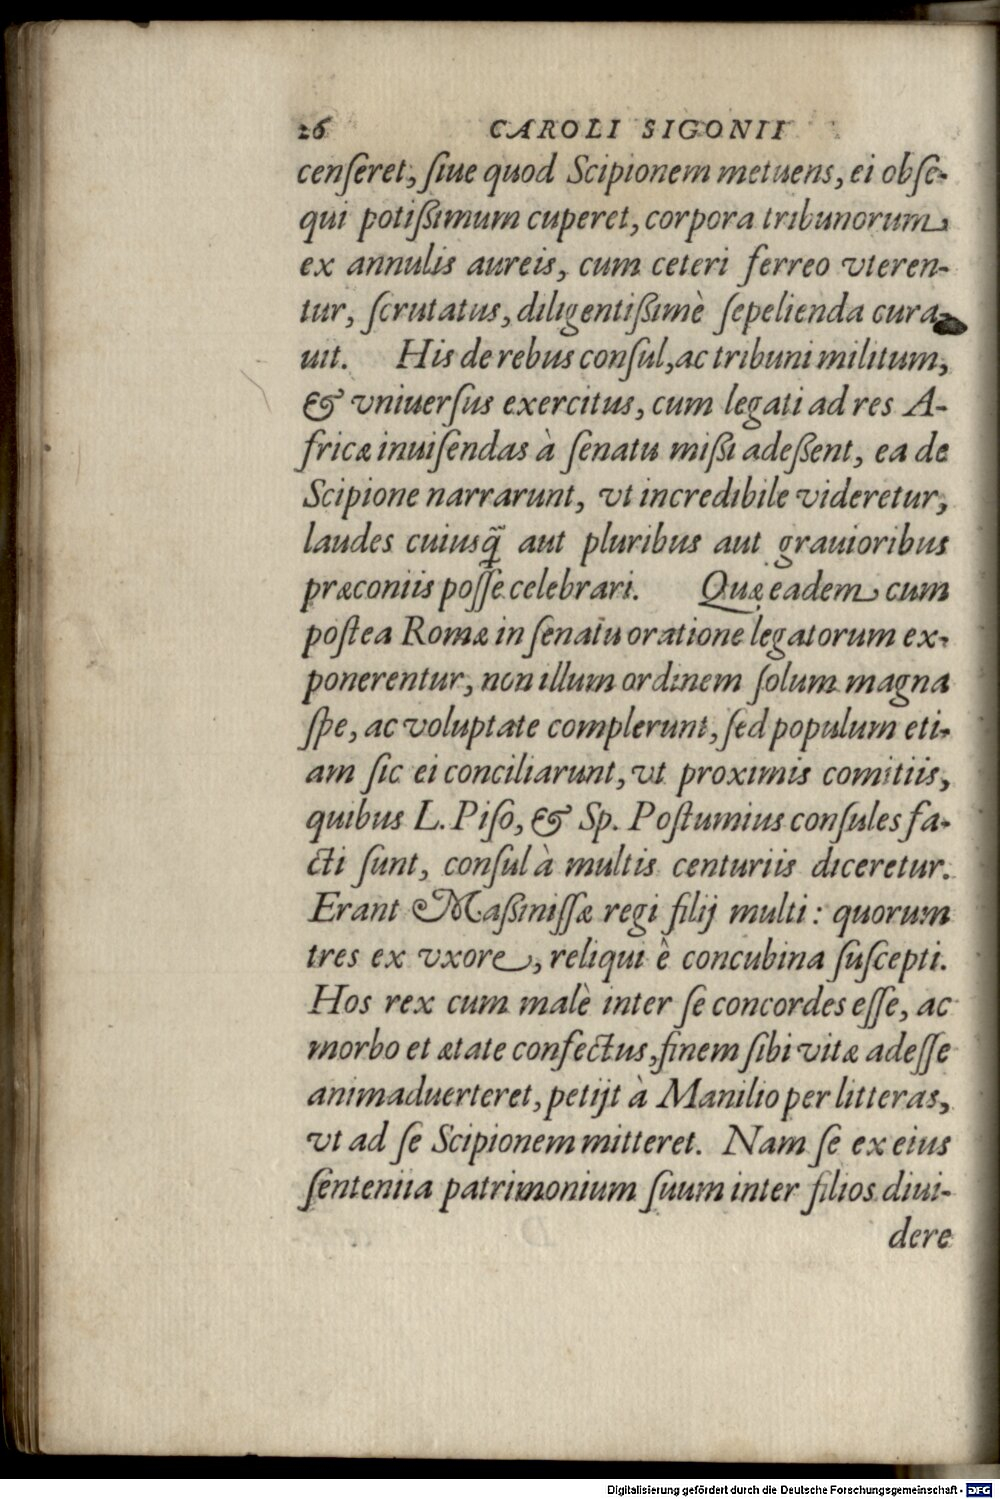 26 CAROLI SIGONII
censeret, siue quod Scipionem metuens, ei obse-
qui potißimum cuperet, corpora tribunorum
ex annulis aureis, cum ceteri ferreo vteren-
tur, scrutatus, diligentißimè sepelienda cura-
uit. His de rebus consul, ac tribuni militum,
& vniuersus exercitus, cum legati ad res A-
fricæ inuisendas à senatu mißi adeßent, ea de
Scipione narrarunt, vt incredibile videretur,
laudes cuiusq̃ aut pluribus aut grauioribus
præconiis posse celebrari. Quæ eadem cum
postea Romæ in senatu oratione legatorum ex-
ponerentur, non illum ordinem solum magna
spe, ac voluptate complerunt, sed populum eti-
am sic ei conciliarunt, vt proximis comitiis,
quibus L. Piso, & Sp. Postumius consules fa-
cti sunt, consul à multis centuriis diceretur.
Erant Maßinissæ regi filij multi: quorum
tres ex vxore, reliqui è concubina suscepti.
Hos rex cum malè inter se concordes esse, ac
morbo et ætate confectus, finem sibi vitæ adesse
animaduerteret, petijt à Manilio per litteras,
vt ad se Scipionem mitteret. Nam se ex eius
sententia patrimonium suum inter filios diui-
dere
Digitalisierung gefördert durch die Deutsche Forschungsgemeinschaft - DFG